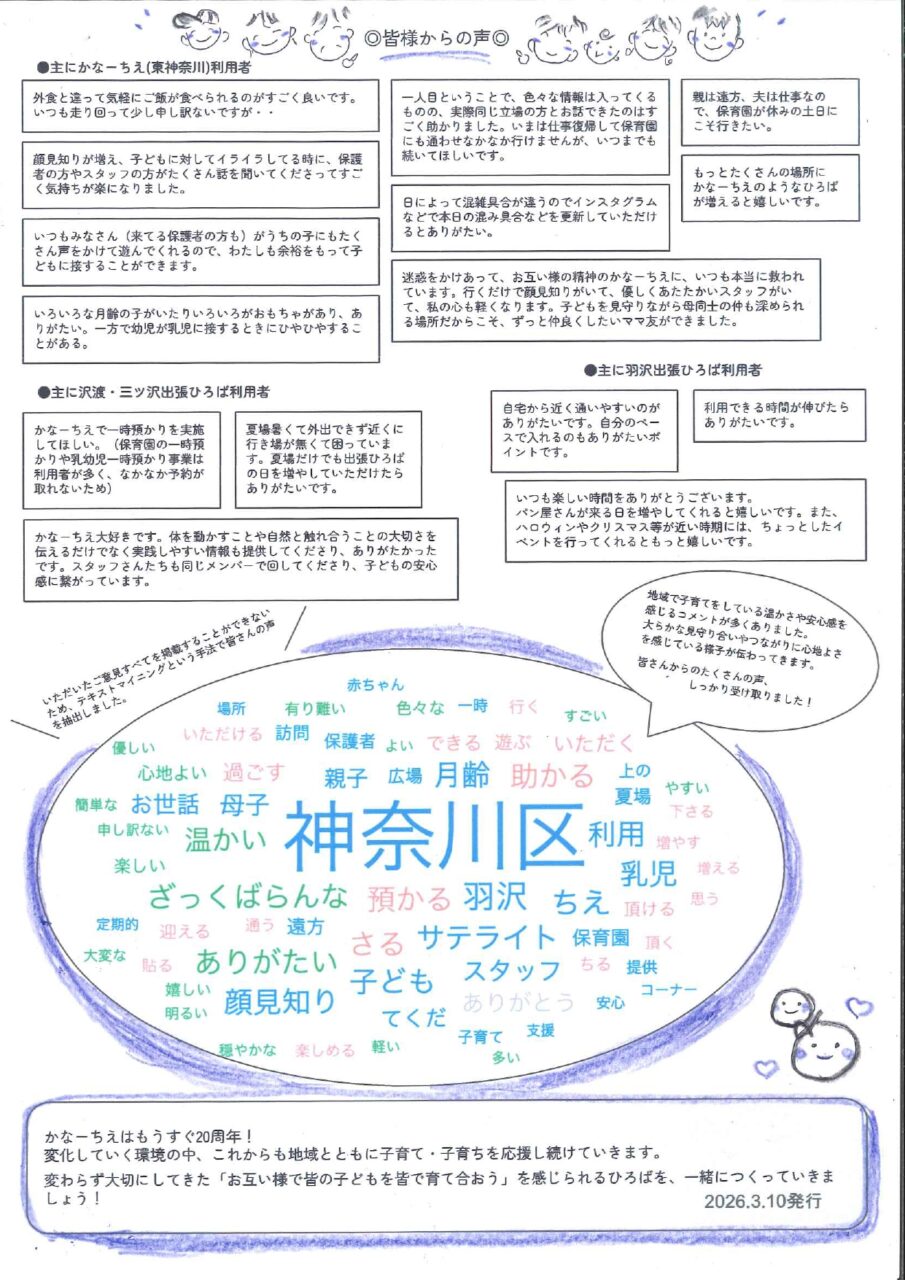 ◎皆様からの声◎
●主にかなーちえ(東神奈川)利用者
外食と違って気軽にご飯が食べられるのがすごく良いです。
いつも走り回って少し申し訳ないですが・・
顔見知りが増え、子どもに対してイライラしてる時に、保護
者の方やスタッフの方がたくさん話を聞いてくださってすご
く気持ちが楽になりました。
いつもみなさん（来てる保護者の方も）がうちの子にもたく
さん声をかけて遊んでくれるので、わたしも余裕をもって子
どもに接することができます。
いろいろな月齢の子がいたりいろいろがおもちゃがあり、あ
りがたい。一方で幼児が乳児に接するときにひやひやするこ
とがある。
一人目ということで、色々な情報は入ってくる
ものの、実際同じ立場の方とお話できたのはす
ごく助かりました。いまは仕事復帰して保育園
にも通わせなかなか行けませんが、いつまでも
続いてほしいです。
日によって混雑具合が違うのでインスタグラム
などで本日の混み具合などを更新していただけ
るとありがたい。
迷惑をかけあって、お互い様の精神のかなーちえに、いつも本当に救われ
ています。行くだけで顔見知りがいて、優しくあたたかいスタッフがい
て、私の心も軽くなります。子どもを見守りながら母同士の仲も深められ
る場所だからこそ、ずっと仲良くしたいママ友ができました。
親は遠方、夫は仕事なの
で、保育園が休みの土日に
こそ行きたい。
もっとたくさんの場所に
かなーちえのようなひろば
が増えると嬉しいです。
●主に沢渡・三ツ沢出張ひろば利用者
かなーちえで一時預かりを実施
してほしい。（保育園の一時預
かりや乳幼児一時預かり事業は
利用者が多く、なかなか予約が
取れないため）
夏場暑くて外出できず近くに
行き場が無くて困っていま
す。夏場だけでも出張ひろば
の日を増やしていただけたら
ありがたいです。
かなーちえ大好きです。体を動かすことや自然と触れ合うことの大切さを
伝えるだけでなく実践しやすい情報も提供してくださり、ありがたかった
です。スタッフさんたちも同じメンバーで回してくださり、子どもの安心
感に繋がっています。
●主に羽沢出張ひろば利用者
自宅から近く通いやすいのが
ありがたいです。自分のペー
スで入れるのもありがたいポ
イントです。
利用できる時間が伸びたら
ありがたいです。
いつも楽しい時間をありがとうございます。
パン屋さんが来る日を増やしてくれると嬉しいです。また、
ハロウィンやクリスマス等が近い時期には、ちょっとしたイ
ベントを行ってくれるともっと嬉しいです。
いただいたご意見すべてを掲載することができない
ため、テキストマイニングという手法で皆さんの声
を抽出しました。
地域で子育てをしている温かさや安心感を
感じるコメントが多くありました。
大らかな見守り合いやつながりに心地よさ
を感じている様子が伝わってきます。
皆さんからのたくさんの声、
しっかり受け取りました！
赤ちゃん
場所 有り難い 色々な 一時 行く すごい
優しい いただける 訪問 保護者 よい できる 遊ぶ いただく
心地よい 過ごす 親子 広場 月齢 助かる 上の やすい
簡単な お世話 母子 夏場 下さる
申し訳ない 温かい 神奈川区 利用 増やす
楽しい 乳児 増える
ざっくばらんな 預かる 羽沢 ちえ 頂ける 思う
定期的 迎える 通う 遠方 さる サテライト 保育園 頂く
大変な 貼る ありがたい 子ども スタッフ ちる 提供
嬉しい 顔見知り ありがとう 安心 コーナー
明るい てくだ 子育て 支援
穏やかな 楽しめる 軽い 多い
かなーちえはもうすぐ20周年！
変化していく環境の中、これからも地域とともに子育て・子育ちを応援し続けていきます。
変わらず大切にしてきた「お互い様で皆の子どもを皆で育て合おう」を感じられるひろばを、一緒につくっていきま
しょう！
2026.3.10発行